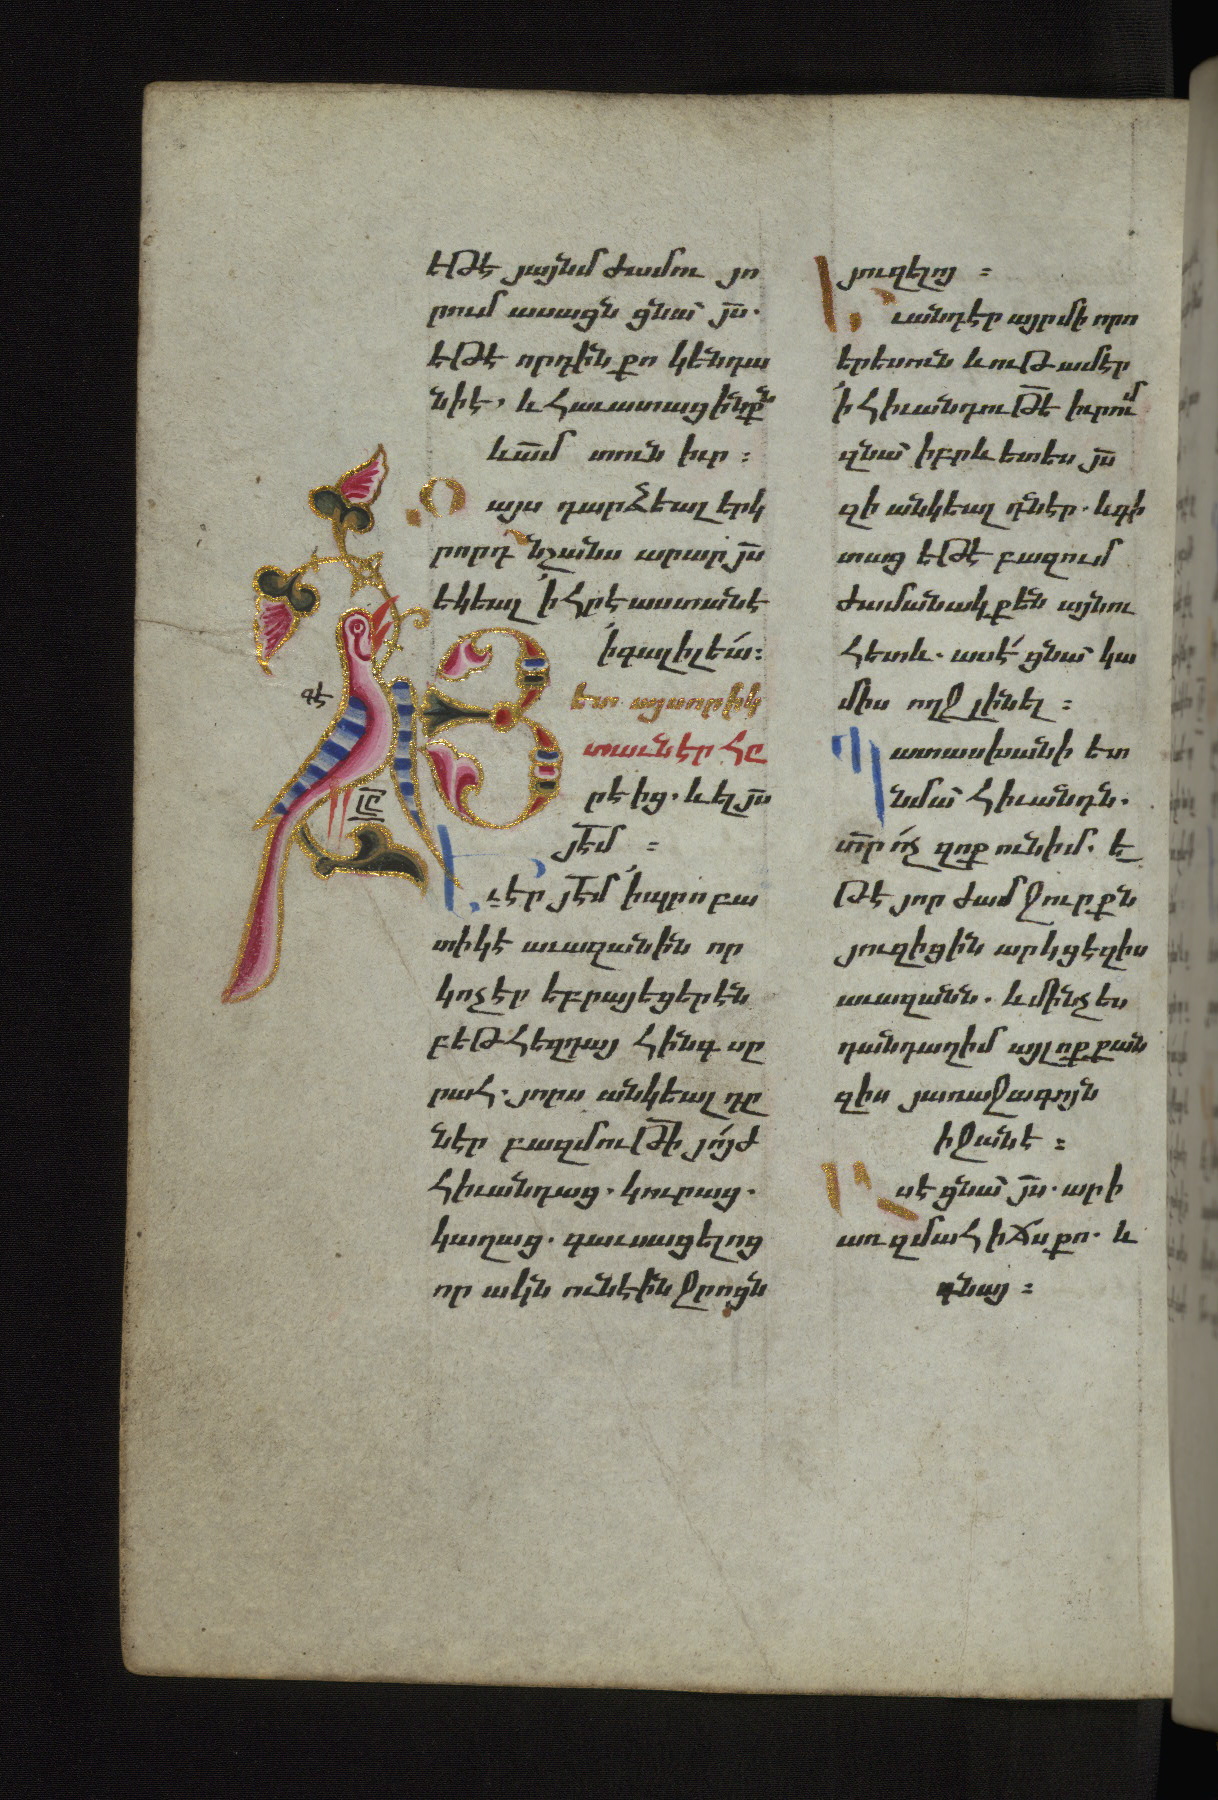 եթէ յայնմ ժամու յո
րում ասացն ցնա՛ յս̄.
եթէ որդին քո կենդա
նիէ, և հաւատաց ինքն
ևա̄մ տուն իւր :
Զայս դարձեալ երկ
րորդ նշանս արար յս̄
եկեալ ՛ի հրէաստանէ
՛ի գալիլեա՛:
Յետ այսորիկ
տաւն էր հը
րէից. և ել յս̄
յե̄մ :
գէ
Եւ էր յե̄մ ՛ի պրոբա
տիկէ աւազանին որ
կոչէր եբրայեցերէն
բեթհեզդայ հինգ սը
րահ. յորս անկեալ դը
նէր բազմութի̄ յո՛յժ
հիւանդաց. կուրաց.
կաղաց. գաւսացելոց
որ ակն ունէին ջրոցն
յուզելոյ :
Եւ անդ էր այր մի որո
երեսուն և ութ ամ էր
՛ի հիւանդութե̄ իւրում
զնա՛ իբրև ետես յս̄
զի անկեալ դնէր. և գի
տաց եթէ բազում
ժամանակք են այնու
հետև. ասէ՛ ցնա՛ կա
միս ողջ լինել :
Պատասխանի ետ
նմա՛ հիւանդն.
տր̄ ո՛չ զոք ունիմ. ե
թէ յորժամ ջուրքն
յուզիցին արկցէ զիս
աւազանն. և մինչ ես
դանդաղիմ այլ ոք քան
զիս յառաջագոյն
իջանէ :
Ասէ ցնա՛ յս̄. արի
առ զմահիճս քո. և
գնայ :